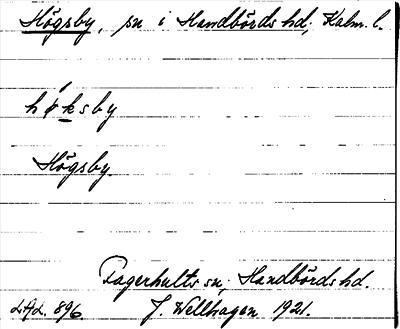 Högsby, sn i Handbörds hd; Kalm. l.
hǿksby
Högsby
Fagerhults sn; Handbörds hd.
LAL. 896 J. Wellhagen 1921.